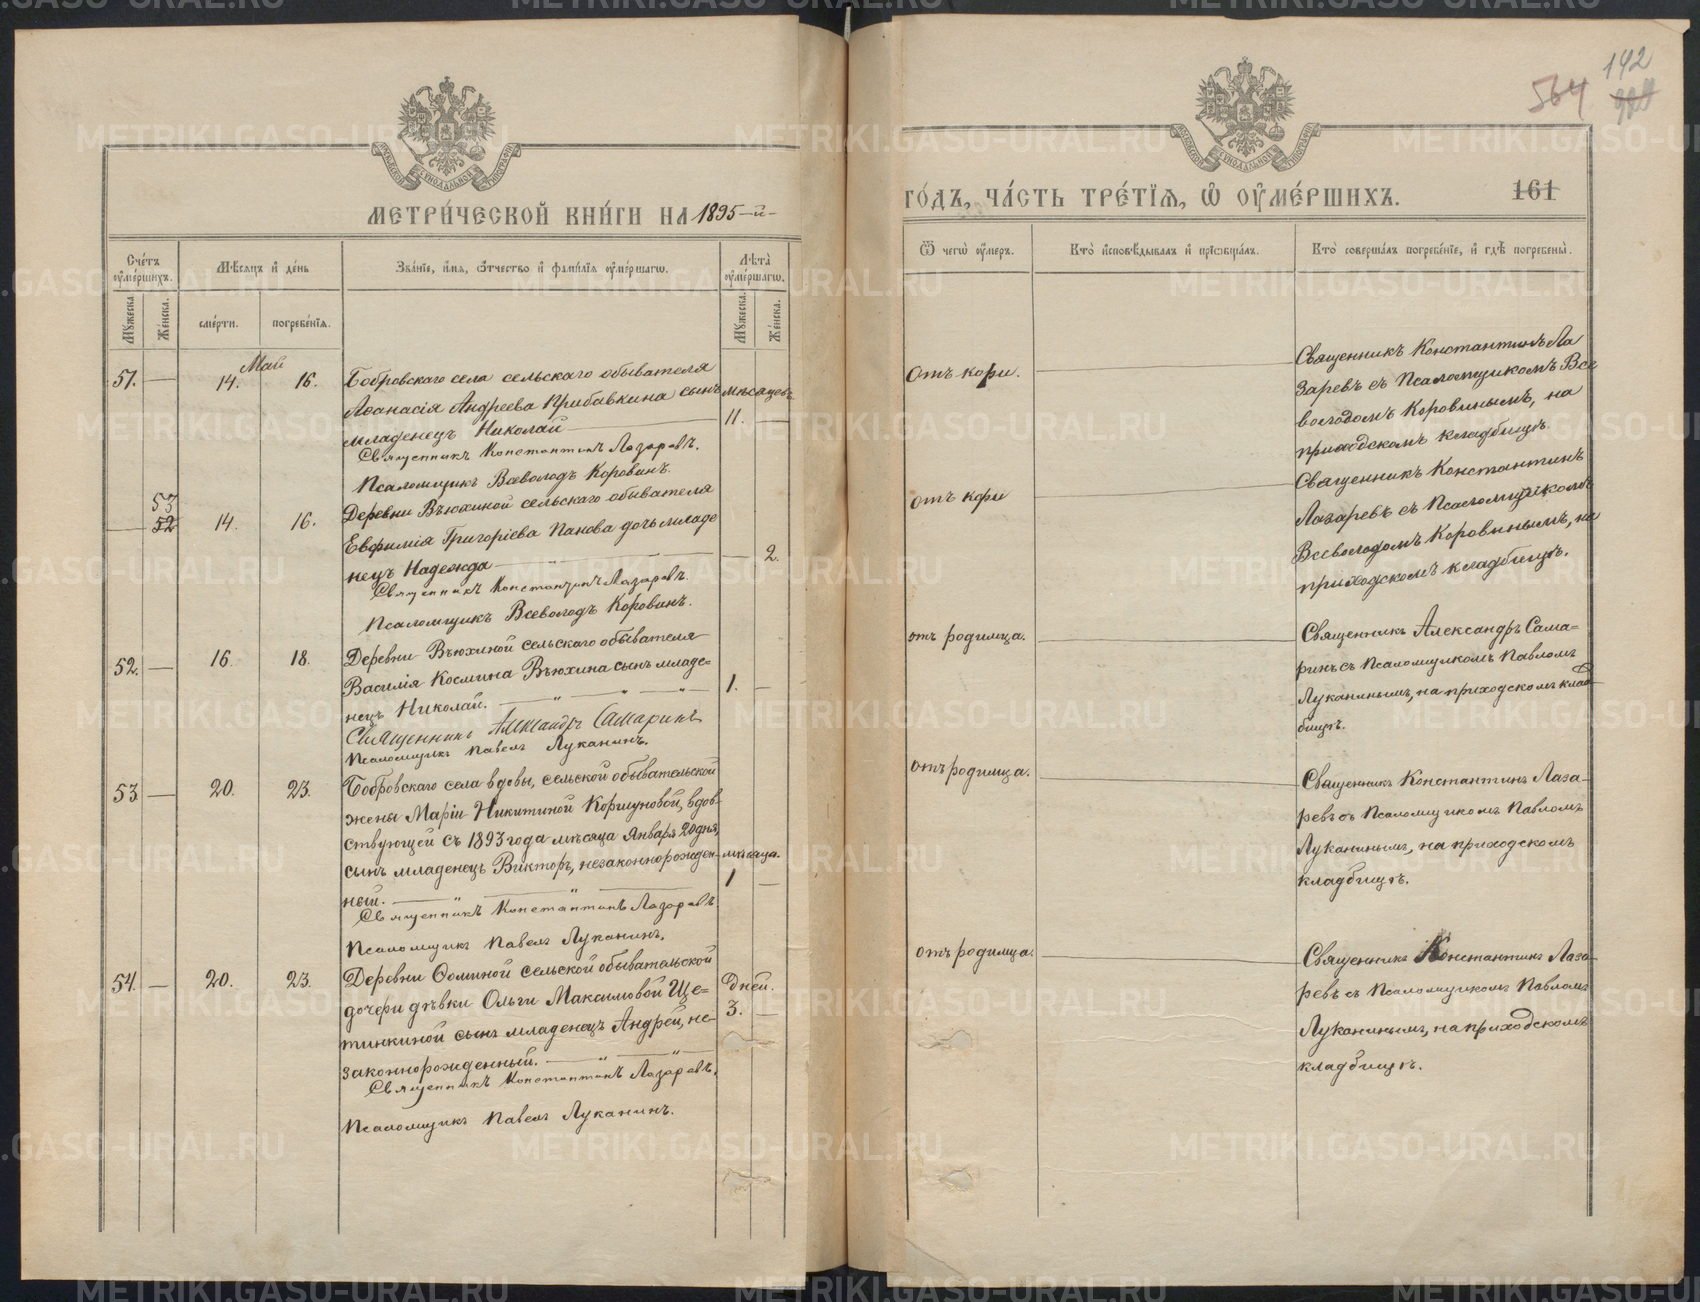 142
564
161
МЕТРИ́ЧЕСКОЙ КНИ́ГИ НА 1895-й-
ГО́ДЪ, ЧА́СТЬ ТРЕ́ТІЯ, Ѽ ОУ҆МЕ́РШИХЪ.
Сче́тъ оу҆ме́ршихъ.
Мѣсяцъ и҆ де́нь
Зва́нїе, и҆́мя, ѻ҆́тчество и҆ фами́лїя оу҆ме́ршагѡ.
Лѣта̀ оу҆ме́ршагѡ.
Ѿ чегѡ̀ оу҆́меръ.
Кто̀ и҆сповѣ́дывалъ и҆ прїѡбща́лъ.
Кто̀ соверша́лъ погребе́нїе, и҆ гдѣ̀ погребены̀.
Мꙋ́жеска.
Же́нска.
сме́рти.
погребе́нїя.
Мꙋ́жеска.
Же́нска.
Май
51. — 14. 16.
Бобровскаго села сельскаго обывателя
Аѳанасія Андреева Прибавкина сынъ
младенецъ Николай
мѣсяцевъ
11.
Священникъ Константинъ Лазаревъ.
Псаломщикъ Всеволодъ Коровинъ.
Отъ кори.
Священникъ Константинъ Ла
заревъ съ Псаломщикомъ Все
володомъ Коровинымъ, на
приходскомъ кладбищѣ.
53
52 14. 16.
Деревни Вьюхиной сельскаго обывателя
Евфимія Григоріева Панова дочь младе
нецъ Надежда
2.
Священникъ Константинъ Лазаревъ.
Псаломщикъ Всеволодъ Коровинъ.
отъ кори
Священникъ Константинъ
Лазаревъ съ Псаломщикомъ
Всеволодомъ Коровинымъ, на
приходскомъ кладбищѣ.
52. — 16. 18.
Деревни Вьюхиной сельскаго обывателя
Василія Космина Вьюхина сынъ младе-
нецъ Николай.
1.
Священникъ Александръ Самаринъ
Псаломщикъ Павелъ Луканинъ.
отъ родимца.
Священникъ Александръ Сама-
ринъ съ Псаломщикомъ Павломъ
Луканинымъ, на приходскомъ клад
бищѣ.
53. — 20. 23.
Бобровскаго села вдовы, сельской обывательской
жены Маріи Никитиной Коршуновой, вдов-
ствующей съ 1893 года мѣсяца Января 20 дня,
сынъ младенецъ Викторъ, незаконнорожден-
ный.
мѣсяца.
1
Священникъ Константинъ Лазаревъ
Псаломщикъ Павелъ Луканинъ.
отъ родимца.
Священникъ Константинъ Лаза-
ревъ съ Псаломщикомъ Павломъ
Луканинымъ, на приходскомъ
кладбищѣ.
54. — 20. 23.
Деревни Ѳоминой сельской обывательской
дочери дѣвки Ольги Максимовой Ще-
тинкиной сынъ младенецъ Андрей, не-
законнорожденный.
Дней.
3.
Священникъ Константинъ Лазаревъ,
Псаломщикъ Павелъ Луканинъ.
отъ родимца.
Священникъ Константинъ Лаза-
ревъ съ Псаломщикомъ Павломъ
Луканинымъ, на приходскомъ
кладбищѣ.
METRIKI.GASO-URAL.RU